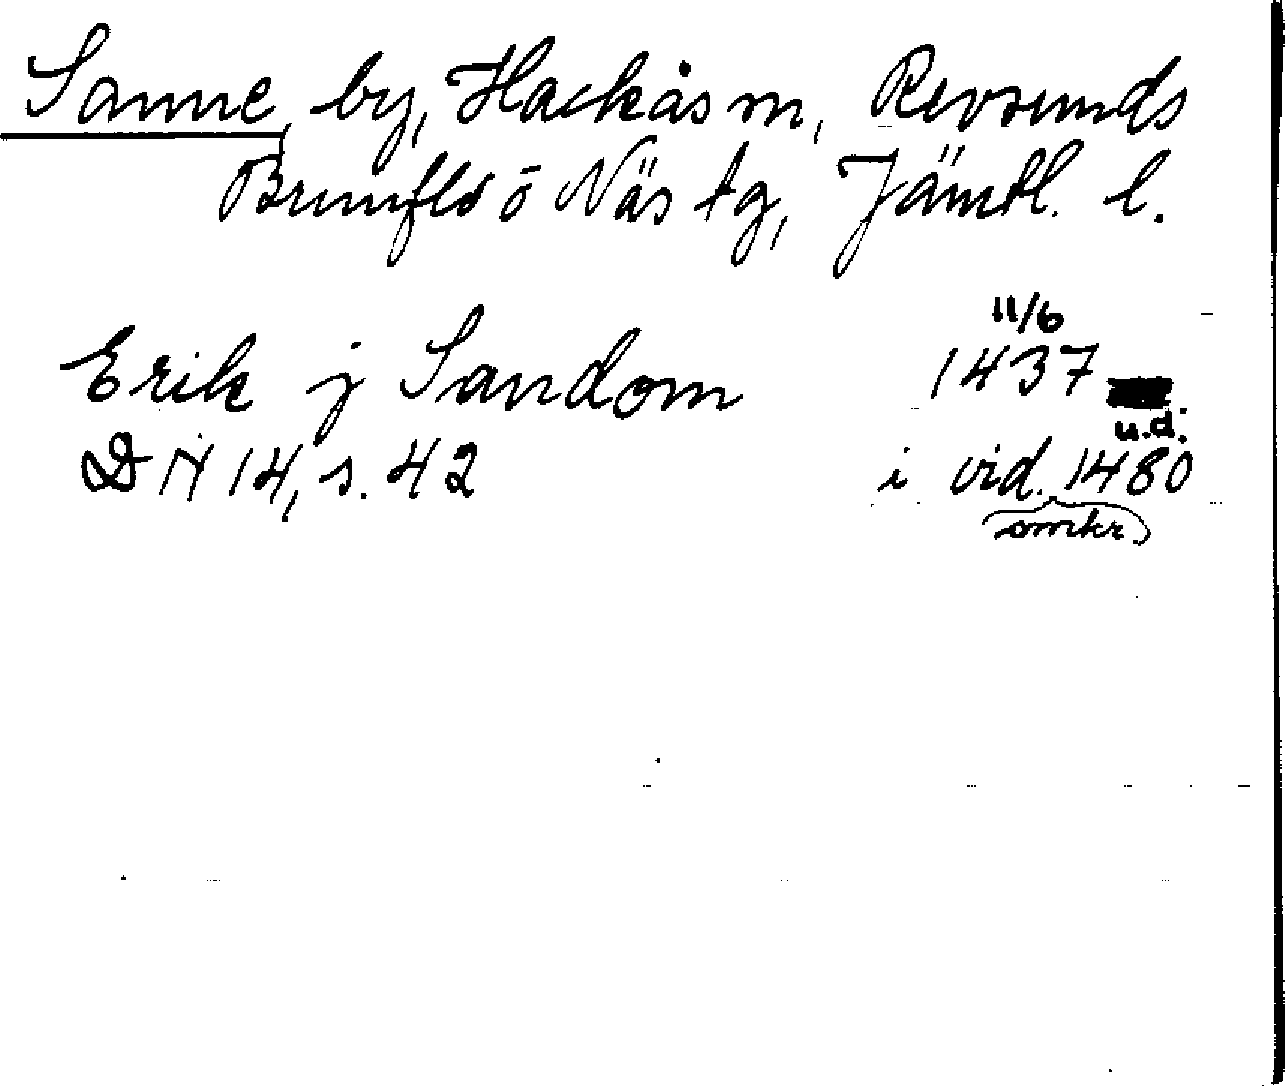 Sanne, by, Hackås sn, Revsunds
Brunflo o Näs tg, Jämtl. l.
11/6
Erik j Sandom 1437
u.d.
DN 14, s. 42 i vid. 1480
omkr.